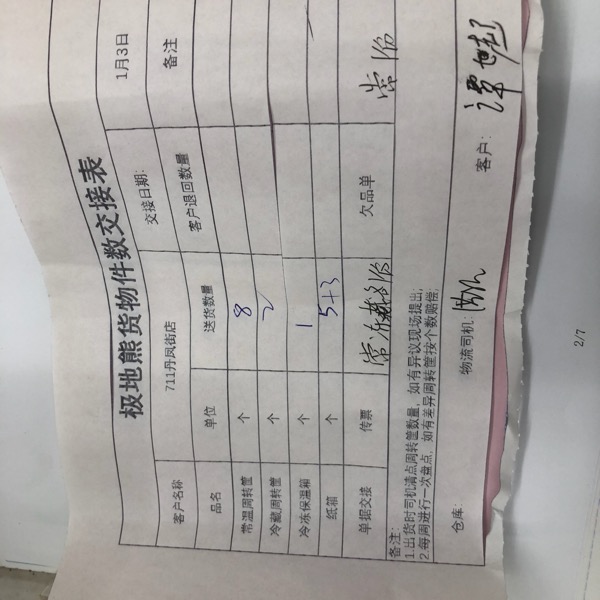 极地熊货物件数交接表
客户名称 711丹凤街店 交接日期: 1月3日
品名 单位 送货数量 客户退回数量 备注
常温周转筐 个 8
冷藏周转筐 个 2
冷冻保温箱 个 1
纸箱 个 5+3
单据交接 传票 欠品单
备注:
1.出货时司机清点周转筐数量，如有异议现场提出;
2.每周进行一次盘点，如有差异周转筐按个数赔偿;
仓库: 物流司机: 客户: 谭
2/7